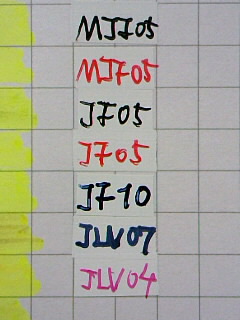 MJF05
MJF05
JF05
JF05
JF10
JLV07
JLV04